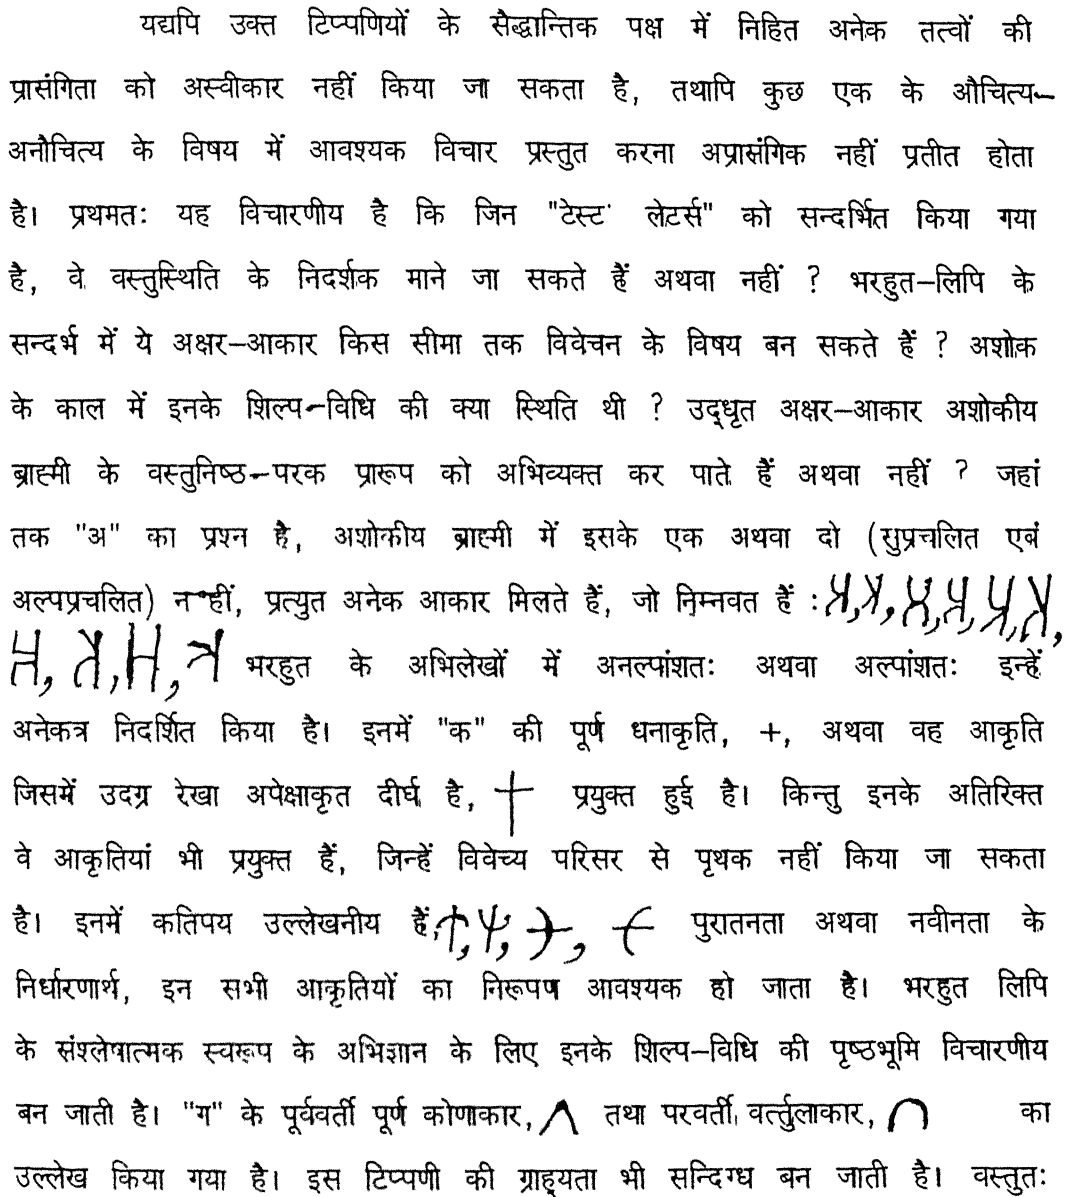 यद्यपि उक्त टिप्पणियों के सैद्धान्तिक पक्ष में निहित अनेक तत्वों की
प्रासंगिता को अस्वीकार नहीं किया जा सकता है, तथापि कुछ एक के औचित्य-
अनौचित्य के विषय में आवश्यक विचार प्रस्तुत करना अप्रासंगिक नहीं प्रतीत होता
है। प्रथमतः यह विचारणीय है कि जिन "टेस्ट लेटर्स" को सन्दर्भित किया गया
है, वे वस्तुस्थिति के निदर्शक माने जा सकते हैं अथवा नहीं ? भरहुत-लिपि के
सन्दर्भ में ये अक्षर-आकार किस सीमा तक विवेचन के विषय बन सकते हैं ? अशोक
के काल में इनके शिल्प-विधि की क्या स्थिति थी ? उद्धृत अक्षर-आकार अशोकीय
ब्राह्मी के वस्तुनिष्ठ-परक प्रारूप को अभिव्यक्त कर पाते हैं अथवा नहीं ? जहां
तक "अ" का प्रश्न है, अशोकीय ब्राह्मी में इसके एक अथवा दो (सुप्रचलित एबं
अल्पप्रचलित) नहीं, प्रत्युत अनेक आकार मिलते हैं, जो निम्नवत हैं :
भरहुत के अभिलेखों में अनल्पांशतः अथवा अल्पांशतः इन्हें
अनेकत्र निदर्शित किया है। इनमें "क" की पूर्ण धनाकृति, +, अथवा वह आकृति
जिसमें उदग्र रेखा अपेक्षाकृत दीर्घ है, प्रयुक्त हुई है। किन्तु इनके अतिरिक्त
वे आकृतियां भी प्रयुक्त हैं, जिन्हें विवेच्य परिसर से पृथक नहीं किया जा सकता
है। इनमें कतिपय उल्लेखनीय हैं, पुरातनता अथवा नवीनता के
निर्धारणार्थ, इन सभी आकृतियों का निरूपण आवश्यक हो जाता है। भरहुत लिपि
के संश्लेषात्मक स्वरूप के अभिज्ञान के लिए इनके शिल्प-विधि की पृष्ठभूमि विचारणीय
बन जाती है। "ग" के पूर्ववर्ती पूर्ण कोणाकार, तथा परवर्ती वर्त्तुलाकार, का
उल्लेख किया गया है। इस टिप्पणी की ग्राह्यता भी सन्दिग्ध बन जाती है। वस्तुतः